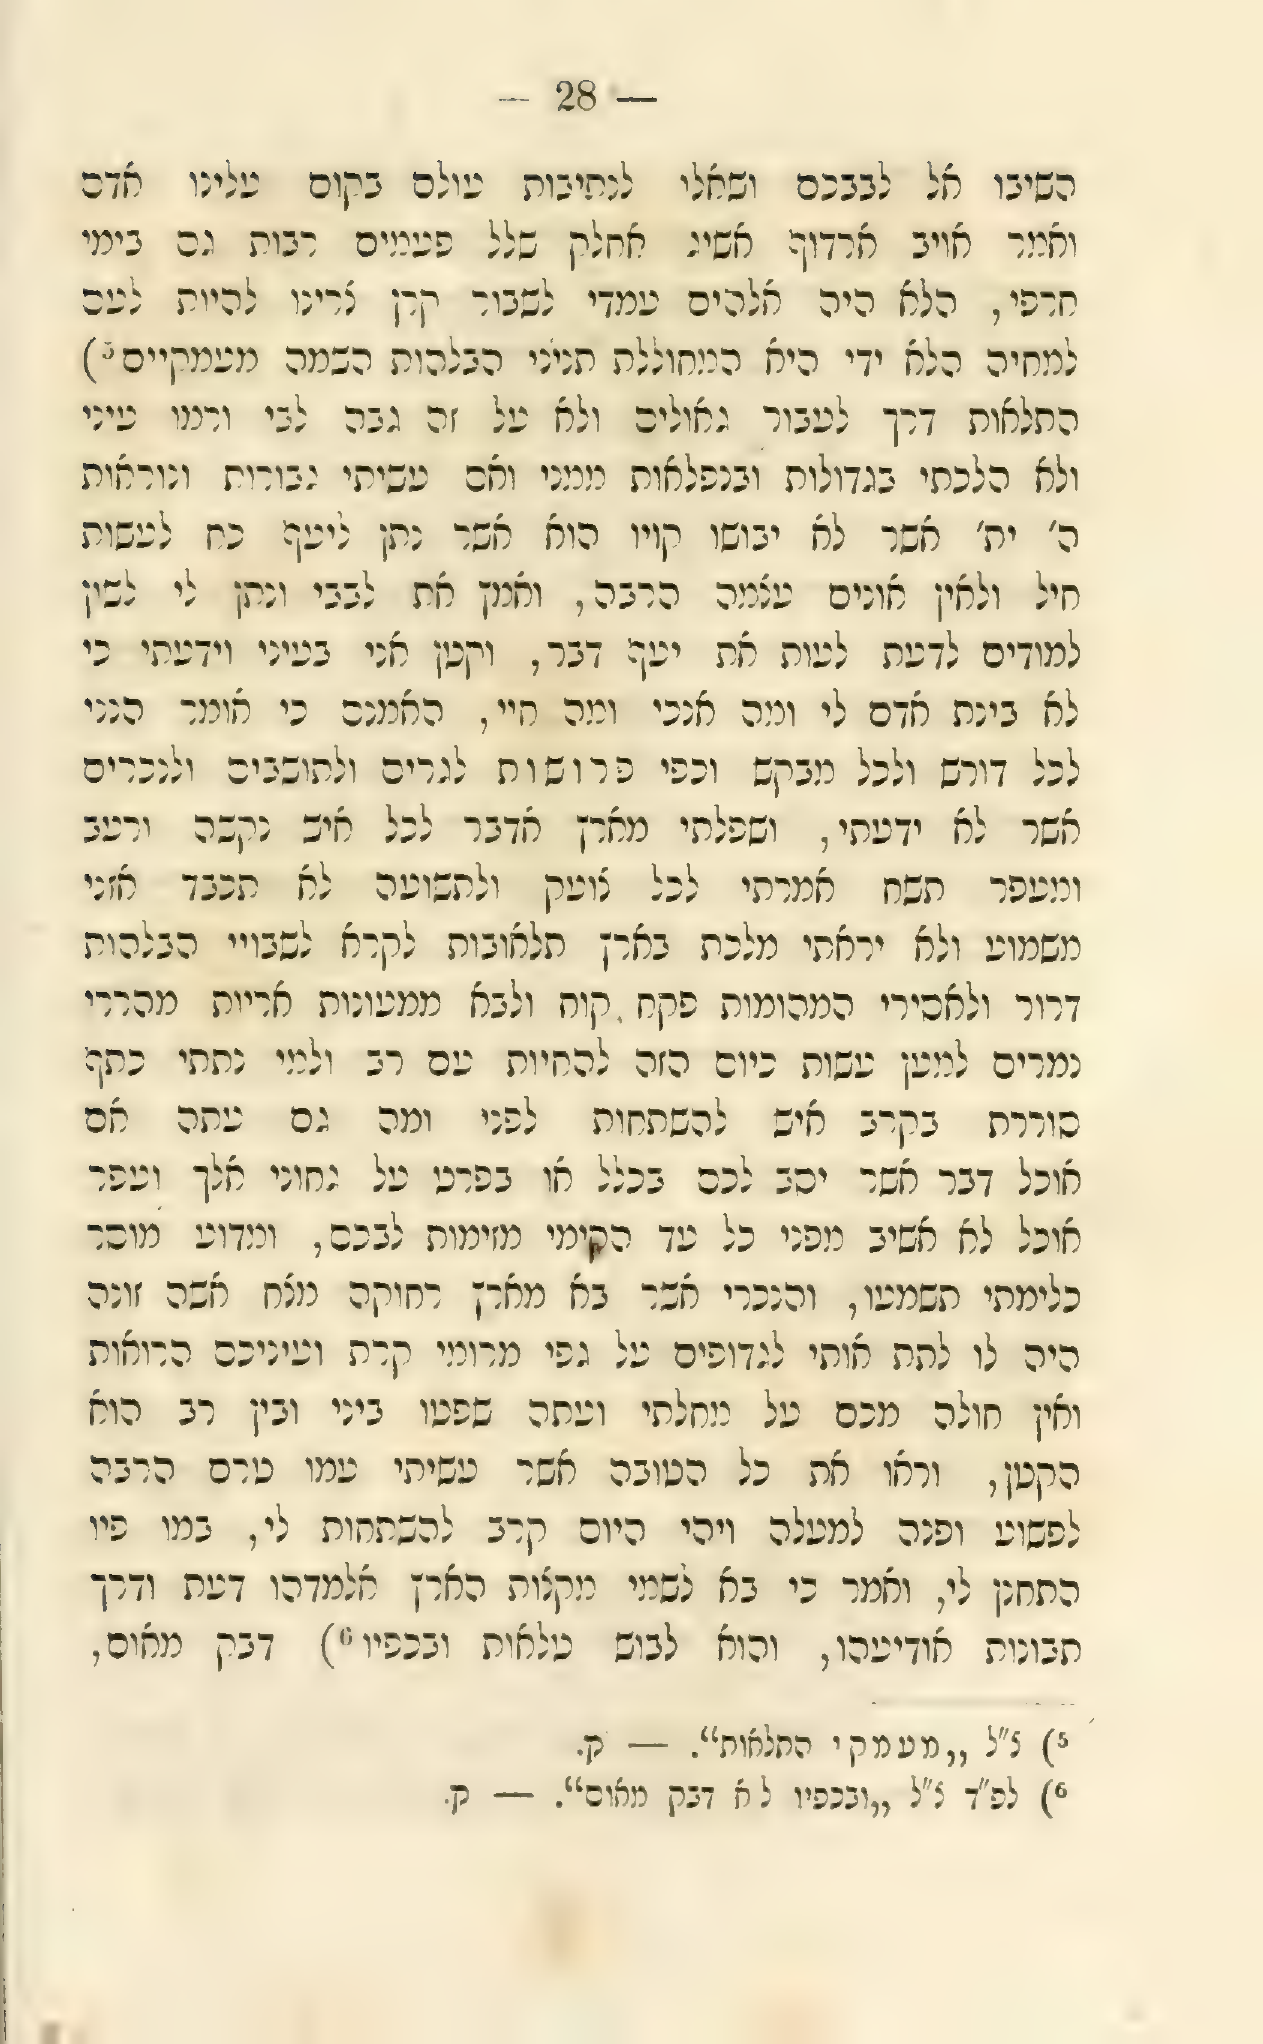 — 28 —
השיבו אל לבבכם ושאלו לנתיבות עולם בקום עלינו אדם
ואמר אויב ארדוף אשיג אחלק שלל פעמים רבות גם בימי
חרפי, הלא היה אלהים עמדי לשבור קרן צרינו להיות לעם
למחיה הלא ידי היא המחוללת תניני הבלהות השמה מעמקיים⁵)
התלאות דרך לעבור גאולים ולא על זה גבה לבי ורמו עיני
ולא הלכתי בגדולות ובנפלאות ממני ואם עשיתי גבורות ונוראות
ה' ית' אשר לא יבושו קויו הוא אשר נתן ליעף כח לעשות
חיל ולאין אונים עצמה הרבה, ואמץ את לבבי ונתן לי לשון
למודים לדעת לעות את יעף דבר, וקטן אני בעיני וידעתי כי
לא בינת אדם לי ומה אנכי ומה חיי, האמנם כי אומר הנני
לכל דורש ולכל מבקש וכפי פרושות לגרים ולתושבים ולנכרים
אשר לא ידעתי, ושפלתי מארץ אדבר לכל איש נקשה ורעב
ומעפר תשח אמרתי לכל צועק ולתשועה לא תכבד אזני
משמוע ולא יראתי מלכת בארץ תלאובות לקרא לשבויי הבלהות
דרור ולאסירי המהומות פקח קוח ולבא ממעונות אריות מהררי
נמרים למען עשות כיום הזה להחיות עם רב ולמי נתתי כתף
סוררת בקרב איש להשתחות לפני ומה גם עתה אם
אוכל דבר אשר יסב לכם בכלל או בפרט על גחוני אלך ועפר
אוכל לא אשיב מפני כל עד הקימי מזימות לבכם, ומדוע מוסר
כלימתי תשמעו, והנכרי אשר בא מארץ רחוקה מצח אשה זונה
היה לו לתת אותי לגדופים על גפי מרומי קרת ועיניכם הרואות
ואין חולה מכם על מחלתי ועתה שפטו ביני ובין רב הוא
הקטן, וראו את כל הטובה אשר עשיתי עמו טרם הרבה
לפשוע ופנה למעלה ויהי היום קרב להשתחות לי, במו פיו
התחנן לי, ואמר כי בא לשמי מקצות הארץ אלמדהו דעת ודרך
תבונות אודיעהו, והוא לבוש טלאות ובכפיו⁶) דבק מאום,
⁵) צ"ל „מעמקי התלאות“. — ק.
⁶) לפ"ד צ"ל „ובכפיו לא דבק מאום“. — ק.